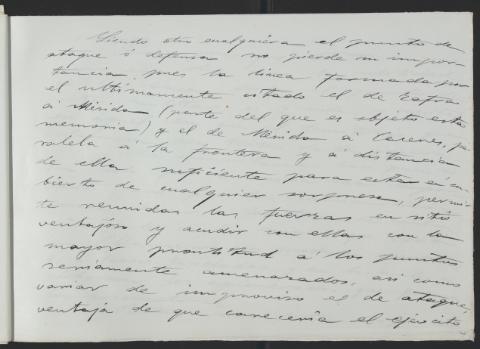 Siendo otro cualquiera el punto de
ataque ó defensa no pierde su impor-
tancia pues la linea formada por
el ultimamente citado el de Zafra
á Mérida (parte del que es objeto esta
memoria) y el de Mérida á Cáceres, pa-
ralela á la frontera y á distancia
de ella suficiente para estar en cu-
bierto de cualquier sorpresa, permi-
te reunidas las fuerzas en sitio
ventajoso y acudir con ellas con la
mayor prontitud á los puntos
seriamente amenazados, asi como
variar de improviso el de ataque,
ventaja de que careceria el ejército